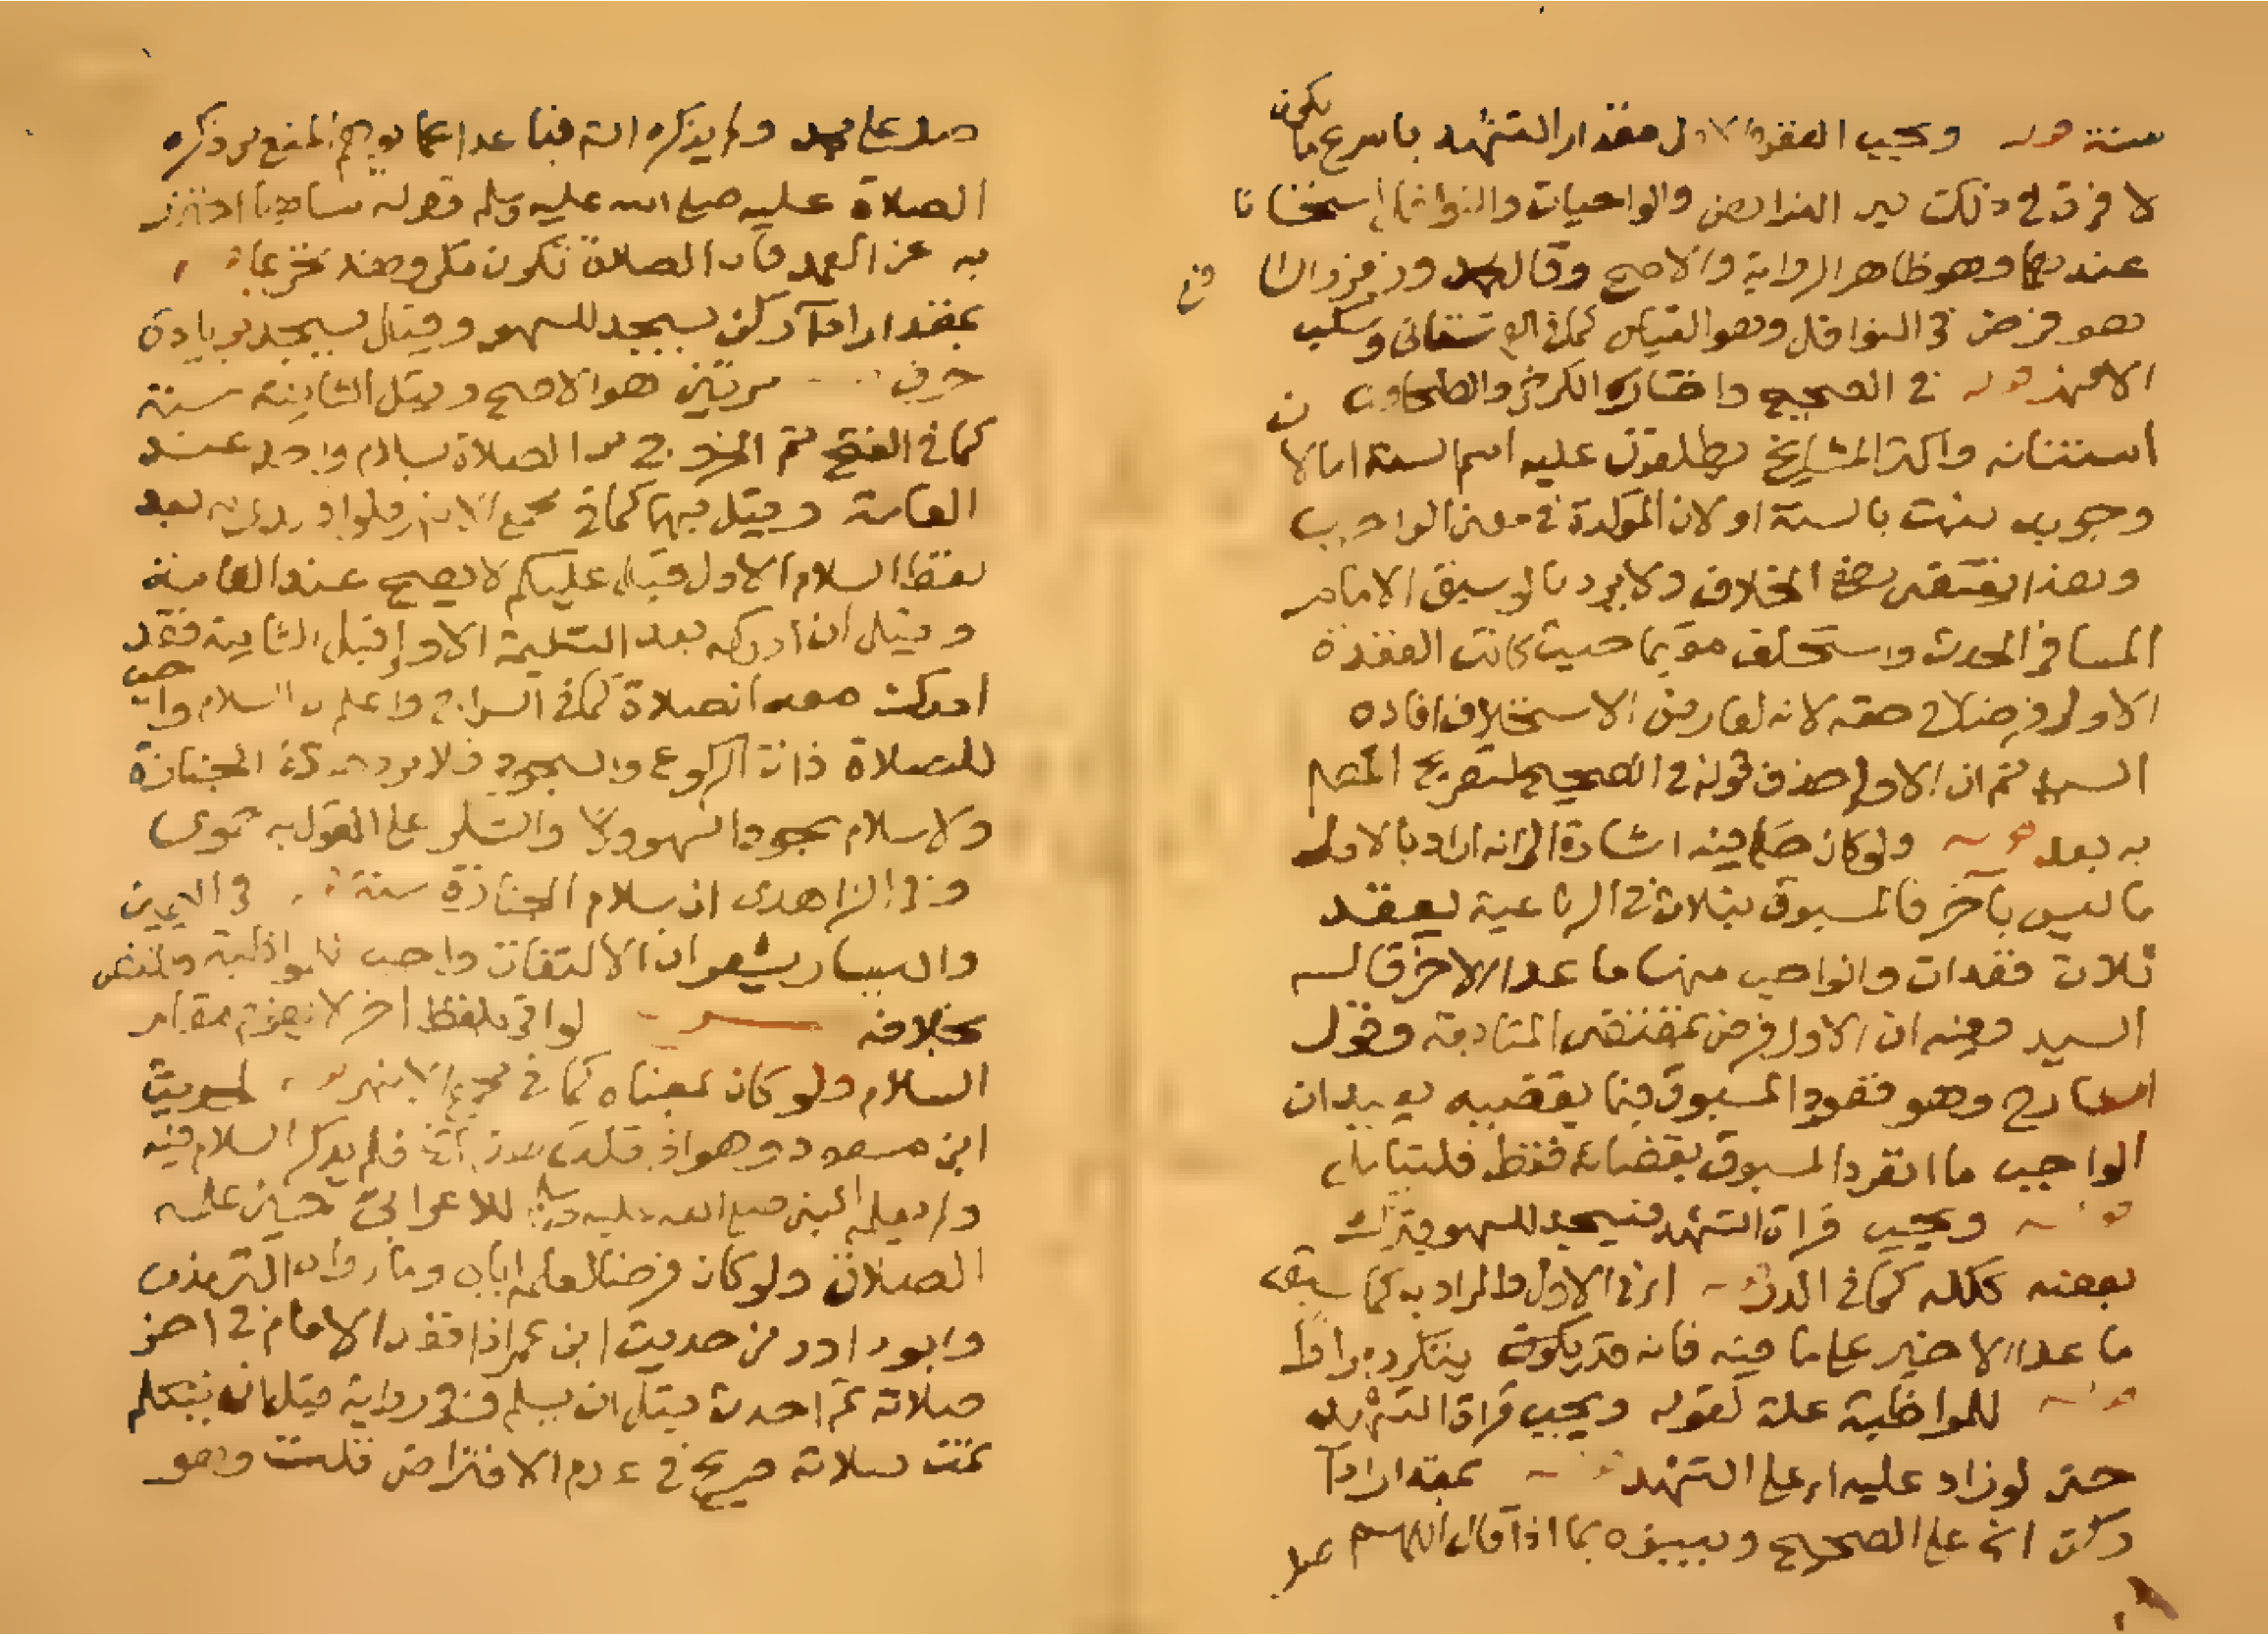 سنة قوله ويجب القعود الاول مقدار التشهد باسرع ما يكون
لا فرق في ذلك بين الفرائض والواجبات والنوافل استحسانا
عندهما وهو ظاهر الرواية والاصح وقال محمد وزفر والشا
هو فرض في النوافل وهو القياس كما في
قوله في الصحيح واختاره الكرخي والطحاوي
استنانه واكثر المشايخ يطلقون عليه اسم السنة اما لا
وجوبه يثبت بالسنة او لان المؤكدة في معنى الواجب
وهذا يقتضي رفع الخلاف ولا يرد ما لو سبق الامام
المسافر الحدث واستخلف مقيما حيث كانت القعدة
الاولى فرضا في حقه لانه لعارض الاستخلاف افاده
السيد ثم ان الاولى حذف قوله في الصحيح لتصريح المصم
به بعد قوله ولو كان حكما فيه اشارة الى انه اراد بالاول
ما ليس بآخر فالمسبوق بثلاث في الرباعية يقعد
ثلاث قعدات والواجب منها ما عدا الاخر قاله
السيد وفيه ان الاول فرض بمقتضى المتابعة وقول
الشارح وهو قعود المسبوق فيما يقضيه يفيد ان
الواجب ما انفرد المسبوق بقضائه فقط فليتامل
قوله ويجب قراة التشهد فيسجد للسهو بترك
بعضه ككله كما في الدر اي في الاول والمراد به كما سبق
ما عدا الاخير على ما فيه فانه قد يكون يتكرر مرارا
قوله للمواظبة علة لقوله ويجب قراة التشهد
حتى لو زاد عليه اي على التشهد قوله بمقدار ادا
ركن اي على الصحيح وبينوه بما اذا قال اللهم صل
صل على محمد ولم يذكره التنه عما يوهم المنع من ذكره
الصلاة عليه صلى الله عليه وسلم قوله ساهيا احترز
به عن العمد فان الصلاة تكون مكروهة تحريما
بمقدار اداء ركن يسجد للسهو وقيل يسجد بزيادة
حرف مرتين هو الاصح وقيل الثانية سنة
كما في الفتح ثم الخروج من الصلاة بسلام واحد عند
العامة وقيل بهما كما في مجمع الانهر فلو اقتدى به بعد
لفظ السلام الاول قبل عليكم لا يصح عند العامة
وقيل ان ادركه بعد التسليمة الاولى قبل الثانية فقد
ادرك معه الصلاة كما في السراج واعلم ان السلام واجب
للصلاة ذات الركوع والسجود فلا يرد الجنازة
ولا سلام سجود السهو والشكر على القول به
وفي الزاهدي ان سلام الجنازة سنة قوله في اليمين
واليسار يشعر ان الالتفات واجب للمواظبة
بخلافه لو اتى بلفظ اخر لا يقوم مقام
السلام ولو كان بمعناه كما في مجمع الانهر قوله لحديث
ابن مسعود وهو اذا قلت هذا الخ فلم يذكر السلام فيه
ولم يعلمه النبي صلى الله عليه وسلم للاعرابي حين علمه
الصلاة ولو كان فرضا لعلمه اياه وما رواه الترمذي
وابو داود من حديث ابن عمر اذا قعد الامام في اخر
صلاته ثم احدث قبل ان يسلم وفي رواية قبل ان يتكلم
تمت صلاته صريح في عدم الافتراض قلت وهو